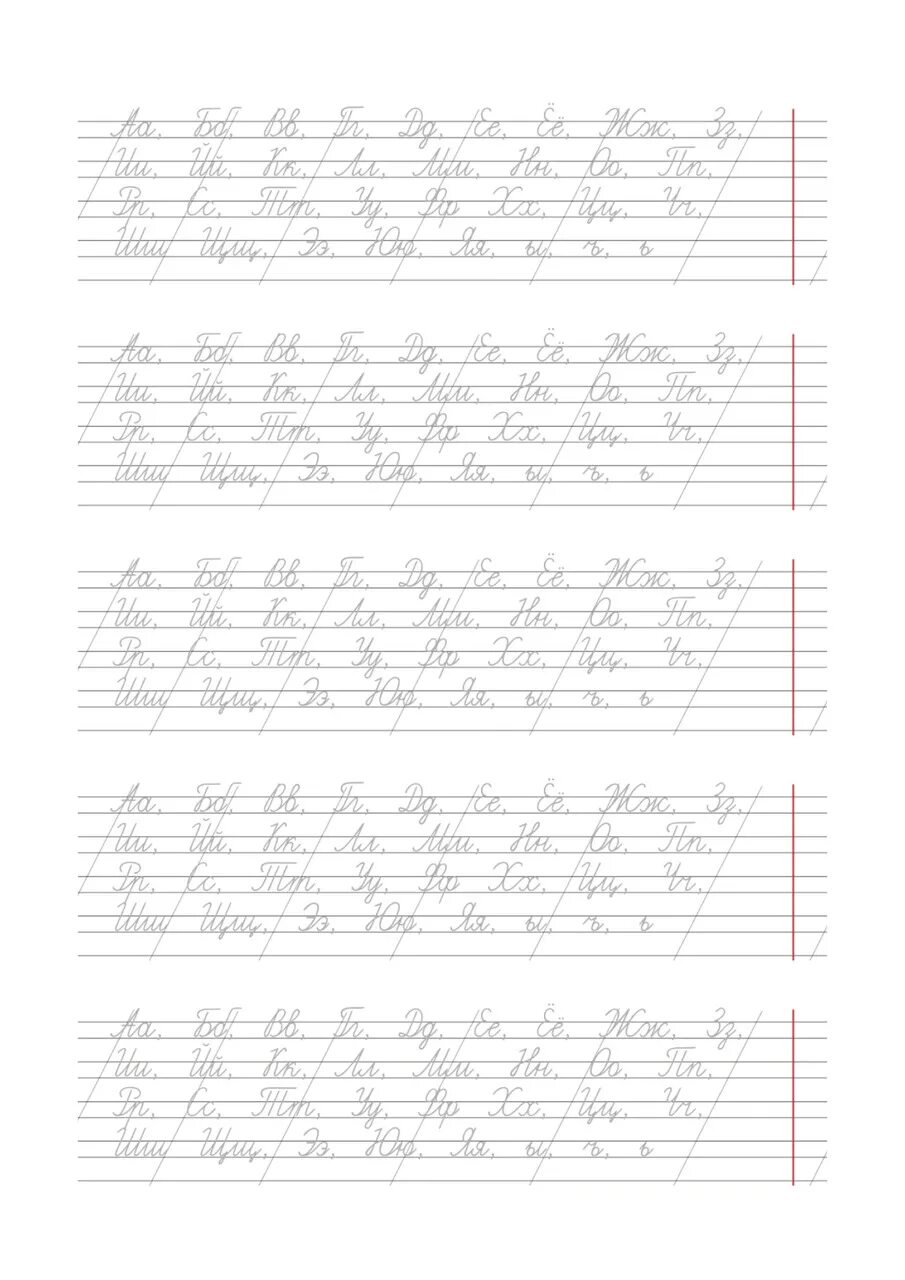 Аа, Бб, Вв, Гг, Дд, Ее, Ёё, Жж, Зз,
Ии, Йй, Кк, Лл, Мм, Нн, Оо, Пп,
Рр, Сс, Тт, Уу, Фф Хх, Цц, Чч,
Шш Щщ, Ээ, Юю, Яя, ы, ъ, ь
Аа, Бб, Вв, Гг, Дд, Ее, Ёё, Жж, Зз,
Ии, Йй, Кк, Лл, Мм, Нн, Оо, Пп,
Рр, Сс, Тт, Уу, Фф Хх, Цц, Чч,
Шш Щщ, Ээ, Юю, Яя, ы, ъ, ь
Аа, Бб, Вв, Гг, Дд, Ее, Ёё, Жж, Зз,
Ии, Йй, Кк, Лл, Мм, Нн, Оо, Пп,
Рр, Сс, Тт, Уу, Фф Хх, Цц, Чч,
Шш Щщ, Ээ, Юю, Яя, ы, ъ, ь
Аа, Бб, Вв, Гг, Дд, Ее, Ёё, Жж, Зз,
Ии, Йй, Кк, Лл, Мм, Нн, Оо, Пп,
Рр, Сс, Тт, Уу, Фф Хх, Цц, Чч,
Шш Щщ, Ээ, Юю, Яя, ы, ъ, ь
Аа, Бб, Вв, Гг, Дд, Ее, Ёё, Жж, Зз,
Ии, Йй, Кк, Лл, Мм, Нн, Оо, Пп,
Рр, Сс, Тт, Уу, Фф Хх, Цц, Чч,
Шш Щщ, Ээ, Юю, Яя, ы, ъ, ь